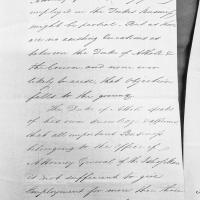 employed in the Dukes Business
might be partial. But as there
are no existing Questions as
between the Duke of Atholl &
the Crown and none ever
likely to arise, that objection
falls to the ground
The Duke of Atholl speaks
of his own knowledge & affirms
that all important Business
belonging to the Office of
Attorney General of the Isle of Man
is not sufficient to give
Employment for more than three